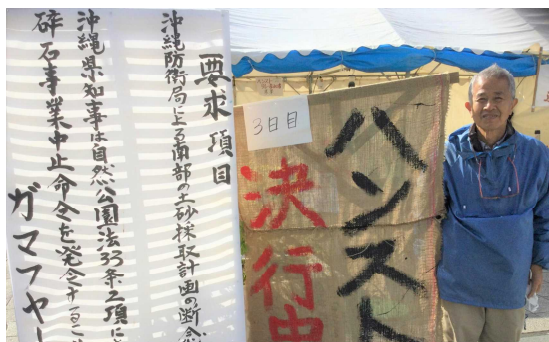 要求項目
沖縄防衛局による南部の土砂採取計画の断念
沖縄県知事は自然公園法33条2項に
砕石事業中止命令を発令するこ
ガマフヤー
3日目
ハンスト
決行中